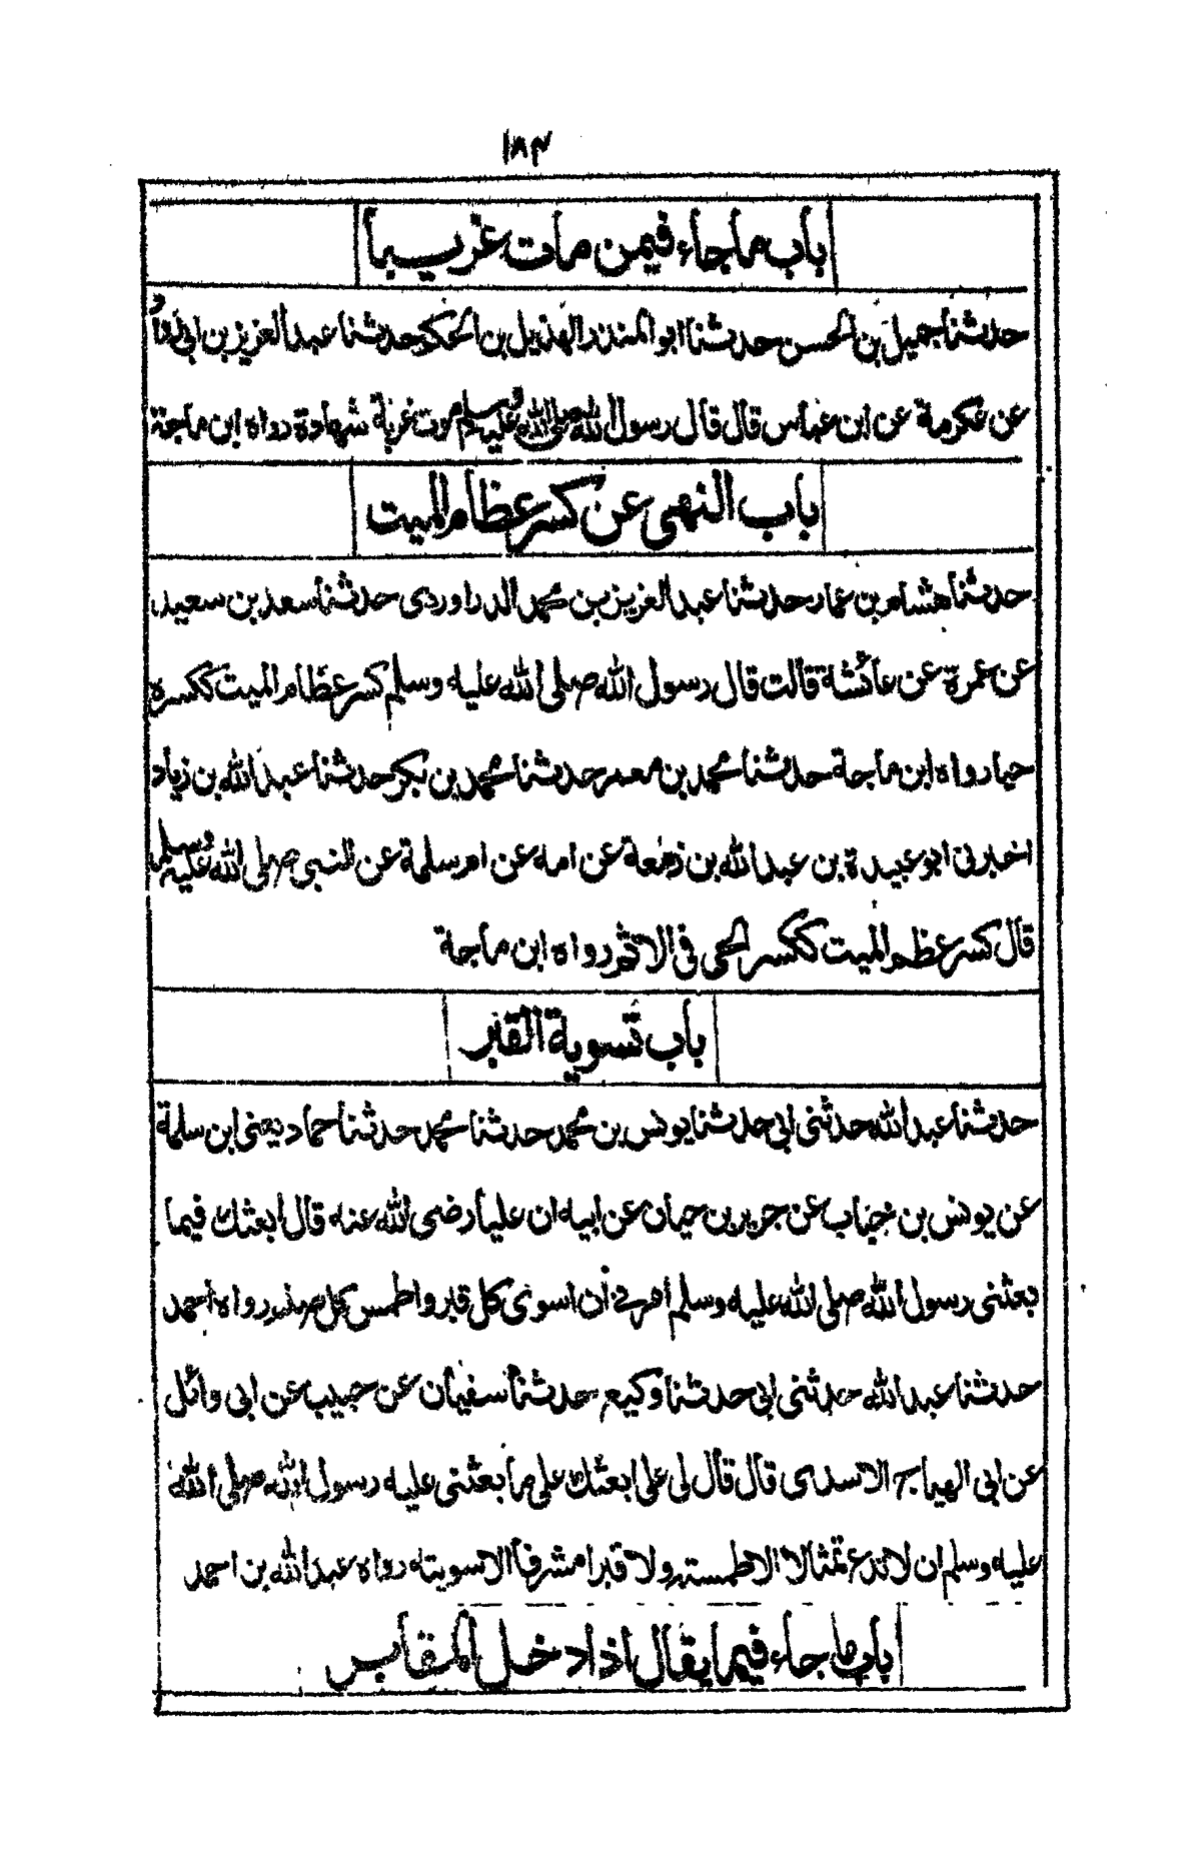 ١٨٣
باب ماجاء فيمن مات غريبا
حدثنا جميل بن الحسن حدثنا ابو المنذر الهذيل بن الحكم حدثنا عبد العزيز بن ابى رواد
عن عكرمة عن ابن عباس قال قال رسول الله صلى الله عليه وسلم موت غربة شهادة رواه ابن ماجة
باب النهى عن كسر عظام الميت
حدثنا هشام بن عمار حدثنا عبد العزيز بن محمد الدراوردى حدثنا سعد بن سعيد
عن عمرة عن عائشة قالت قال رسول الله صلى الله عليه وسلم كسر عظام الميت ككسره
حيا رواه ابن ماجة حدثنا محمد بن معمر حدثنا محمد بن بكر حدثنا عبد الله بن زياد
اخبرنى ابو عبيدة بن عبد الله بن زمعة عن امه عن ام سلمة عن النبى صلى الله عليه وسلم
قال كسر عظم الميت ككسر الحى فى الاثم رواه ابن ماجة
باب تسوية القبر
حدثنا عبد الله حدثنى ابى حدثنا يونس بن محمد حدثنا محمد حدثنا حماد يعنى ابن سلمة
عن يونس بن خباب عن جرير بن حيان عن ابيه ان عليا رضى الله عنه قال ابعثك فيما
بعثنى رسول الله صلى الله عليه وسلم امرنى أن اسوى كل قبر واطمس كل صنم رواه احمد
حدثنا عبد الله حدثنى ابى حدثنا وكيع حدثنا سفيان عن حبيب عن ابى وائل
عن ابى الهياج الاسدى قال قال لى على ابعثك على ما بعثنى عليه رسول الله صلى الله
عليه وسلم ان لا تدع تمثالا الا طمسته ولا قبرا مشرفا الا سويته رواه عبد الله بن احمد
باب ما جاء فيما يقال اذا دخل المقابر